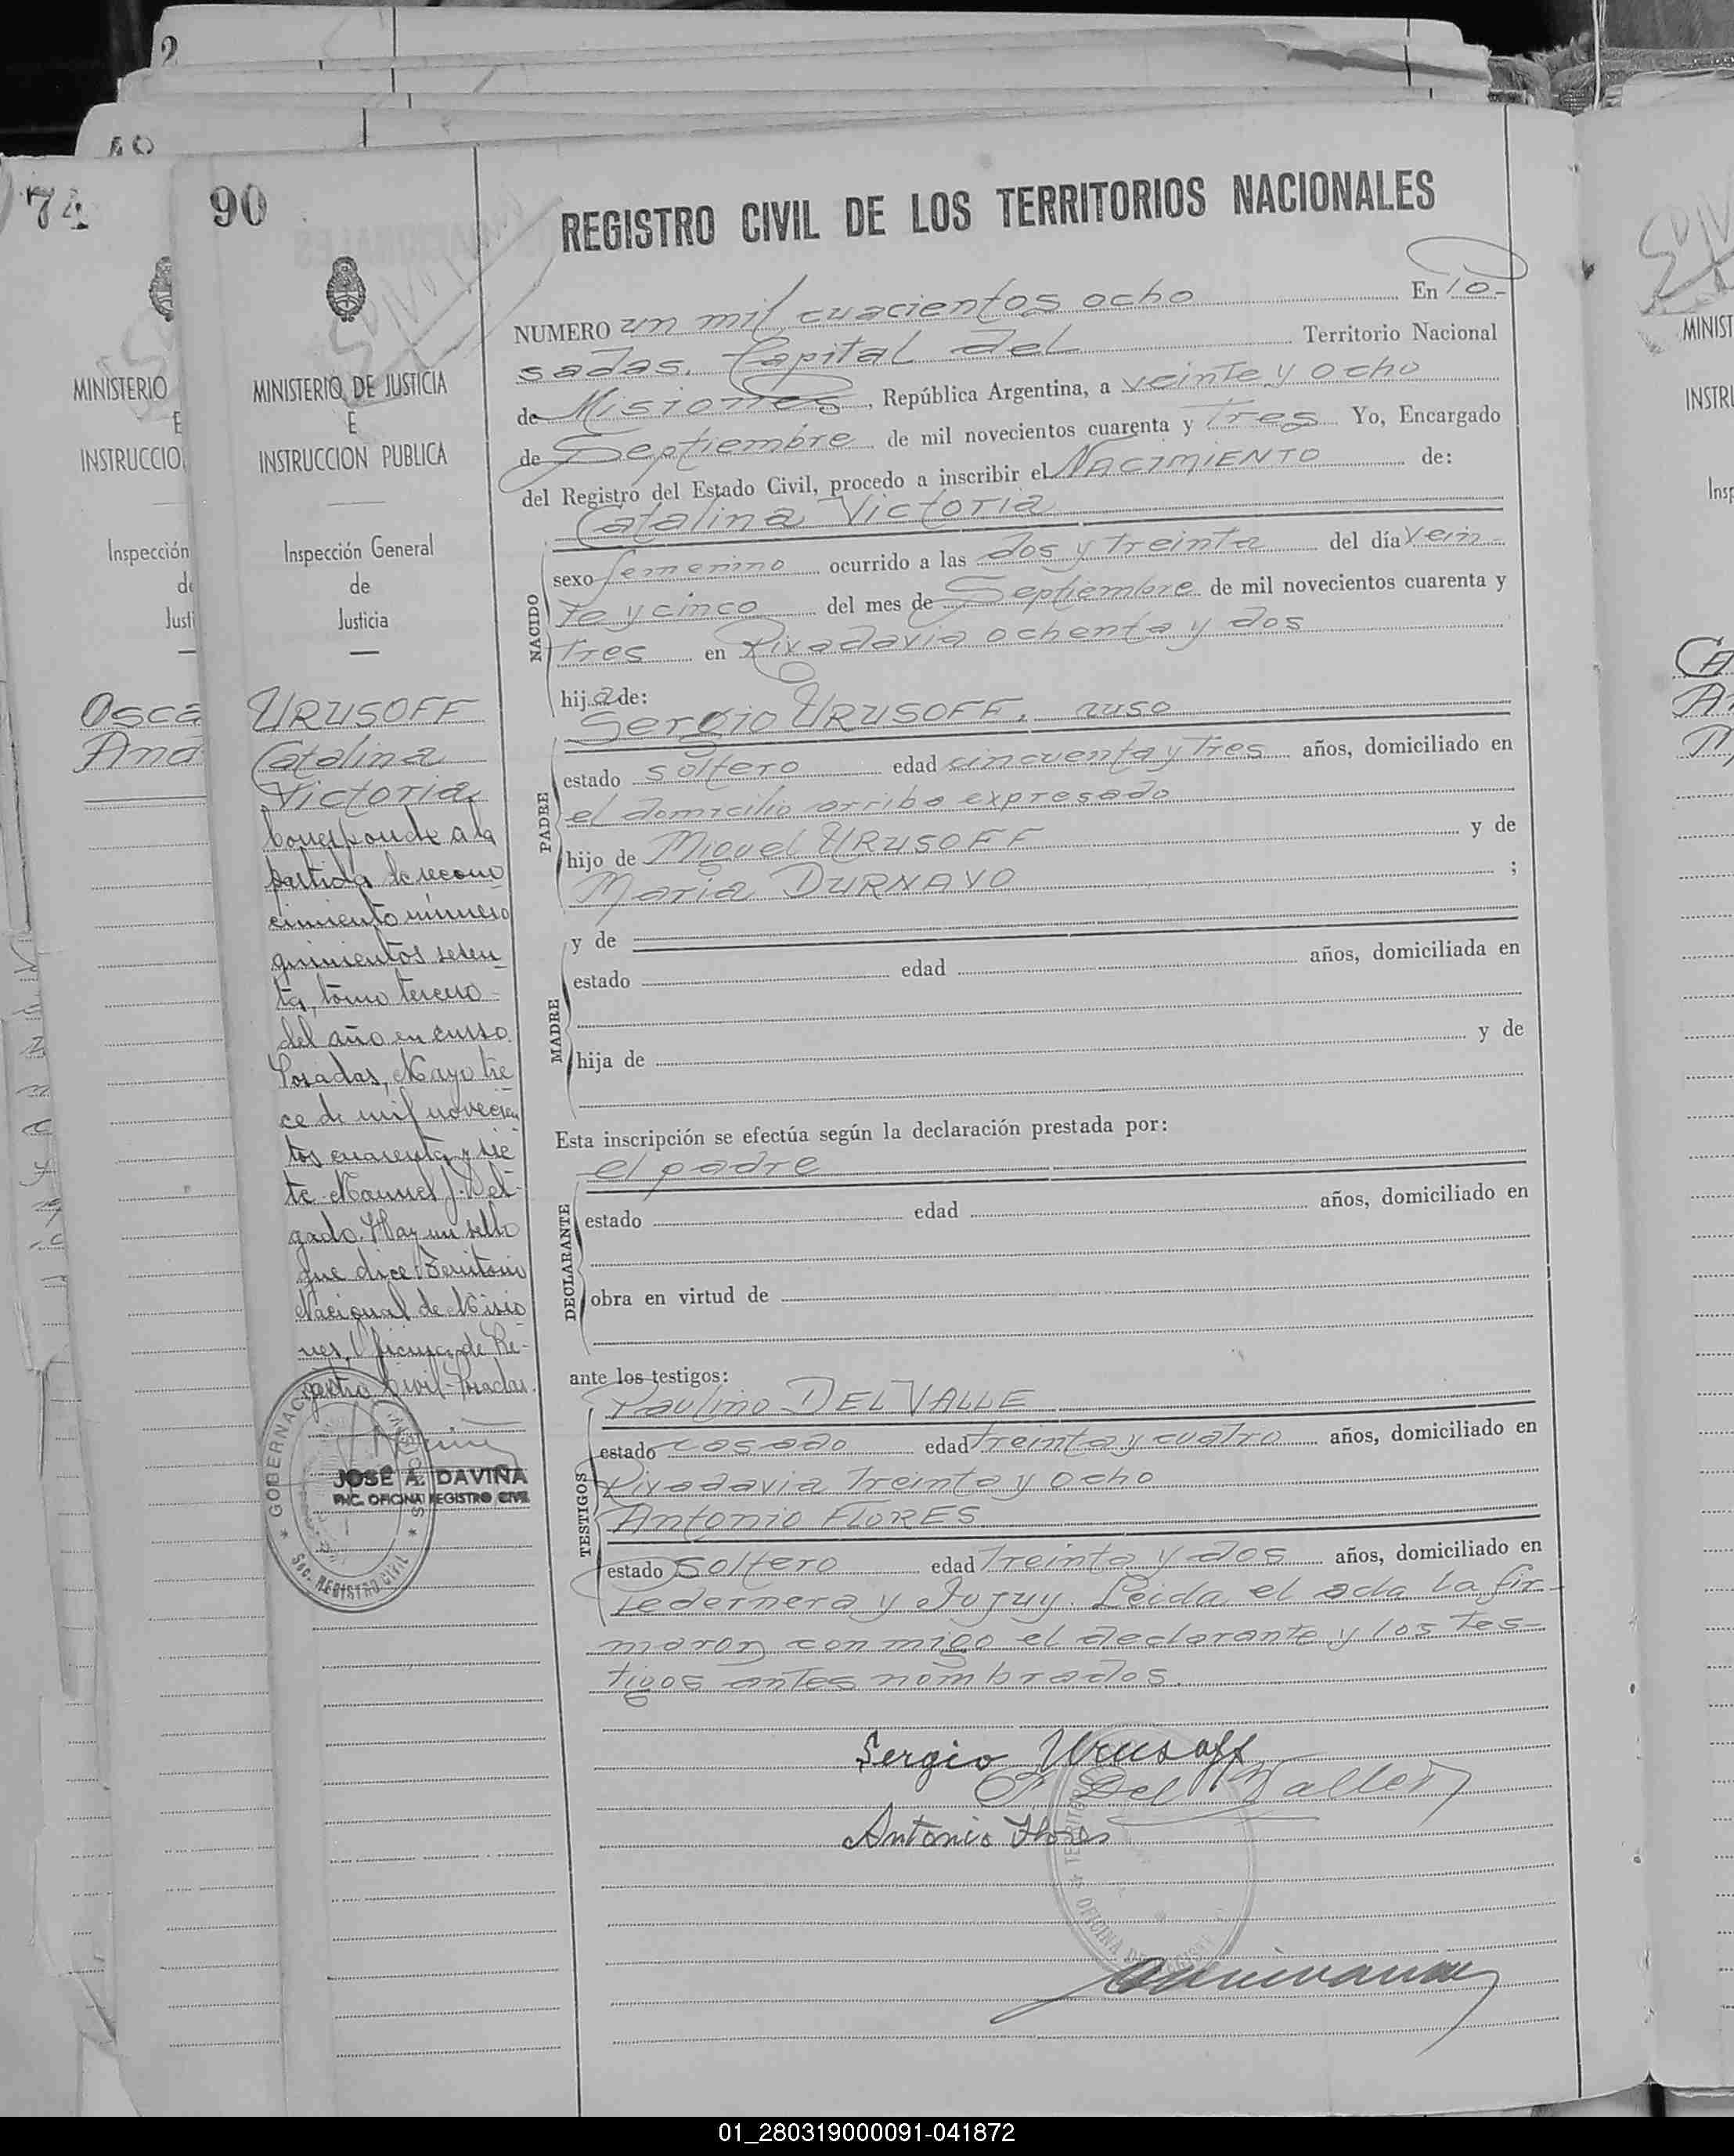 2
48
74
90
REGISTRO CIVIL DE LOS TERRITORIOS NACIONALES
MINISTERIO
E
INSTRUCCIO
Inspección
de
Justi
Osca
Ana
MINISTERIO DE JUSTICIA
E
INSTRUCCION PUBLICA
Inspección General
de
Justicia
URUSOFF
Catalina
Victoria
Corresponde a la
partida de recono
cimiento número
quinientos seten
ta, tomo tercero
del año en curso.
Posadas, Mayo tre
ce de mil novecien
tos cuarenta y sie
te Manuel J. Del-
gado. Hay un sello
que dice Territorio
Nacional de Misio
nes, Oficina de Re-
gistro Civil-Posadas.
JOSÉ A. DAVIÑA
ENC. OFICINA REGISTRO CIVIL
GOBERNAC
Sec. REGISTRO CIVIL
NUMERO un mil cuacientos ocho En Po-
sadas. Capital del Territorio Nacional
de Misiones, República Argentina, a veinte y ocho
de Septiembre de mil novecientos cuarenta y Tres Yo, Encargado
del Registro del Estado Civil, procedo a inscribir el NACIMIENTO de:
Catalina Victoria
NACIDO
sexo femenino ocurrido a las dos y treinta del día vein-
te y cinco del mes de Septiembre de mil novecientos cuarenta y
Tres en Rivadavia ochenta y dos
hija de:
Sergio URUSOFF. ruso
PADRE
estado soltero edad cincuenta y tres años, domiciliado en
el domicilio arriba expresado
hijo de Miguel URUSOFF y de
Maria DURNAVO ;
MADRE
y de
estado edad años, domiciliada en
hija de y de
Esta inscripción se efectúa según la declaración prestada por:
el padre
DECLARANTE
estado edad años, domiciliado en
obra en virtud de
ante los testigos:
TESTIGOS
Paulino DEL VALLE
estado casado edad treinta y cuatro años, domiciliado en
Rivadavia Treinta y ocho
Antonio FLORES
estado Soltero edad treinta y dos años, domiciliado en
Pedernera y Jujuy. Leida el acta la fir-
maron conmigo el declarante y los tes-
tigos antes nombrados.
Sergio Urusoff
P. Del Valle
Antonio Flores
OFICINA DE
MINIST
INSTRU
Insp
01_280319000091-041872